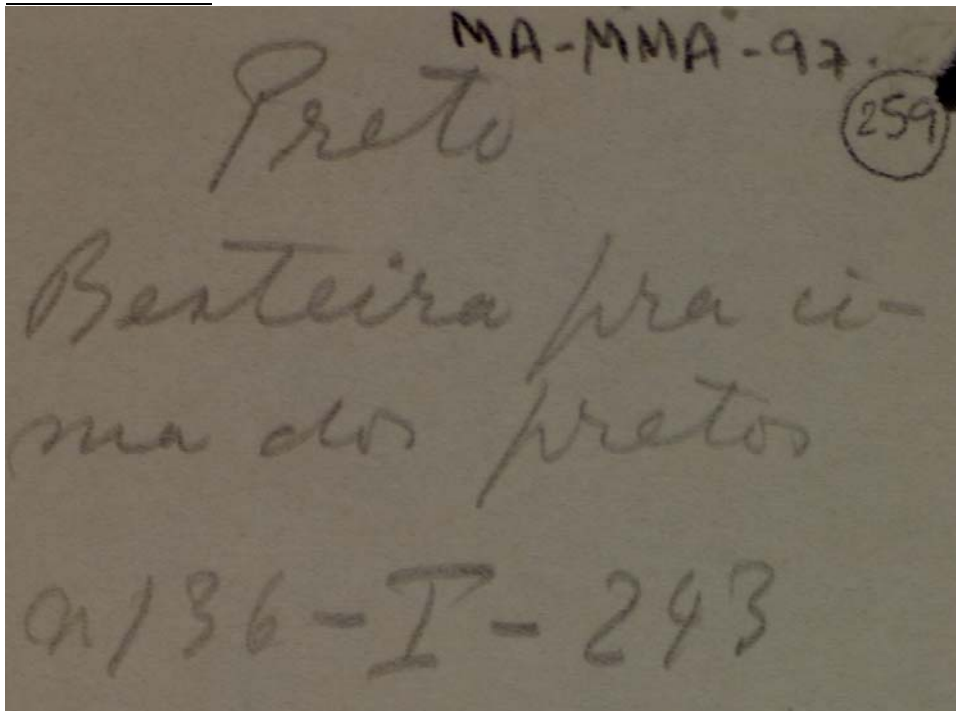 MA-MMA-97.
259
Preto
Besteira pra ci-
ma dos pretos
n136-I-243